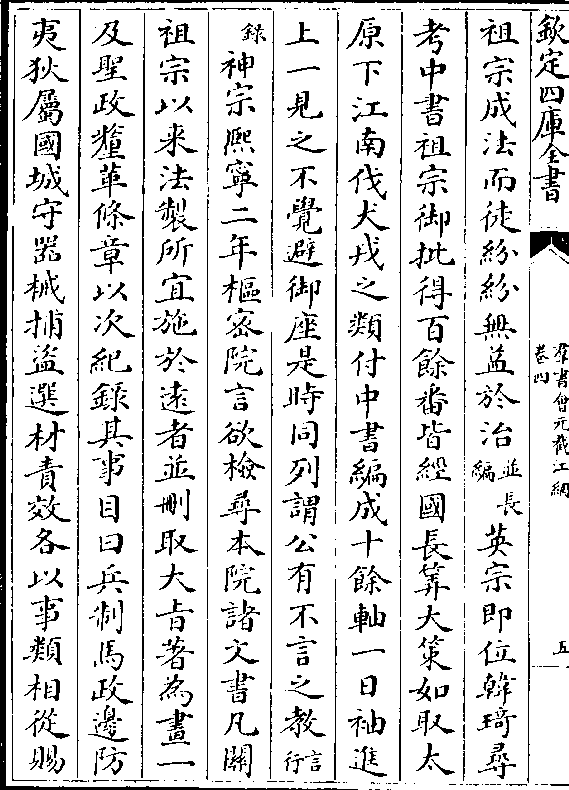 欽定四庫全書
群書會元截江網
卷四
五
祖宗成法而徒紛紛無益於治並長編英宗即位韓琦尋
考中書祖宗御批得百餘番皆經國長筭大策如取太
原下江南伐犬戎之類付中書編成十餘軸一日袖進
上一見之不覺避御座是時同列謂公有不言之教言行
錄神宗熈寧二年樞密院言欲檢尋本院諸文書凡關
祖宗以来法製所宜施於逺者並刪取大㫖著為畫一
及聖政釐革條章以次紀錄其事目曰兵制馬政邊防
夷狄屬國城守器械捕盜選材責效各以事類相從賜